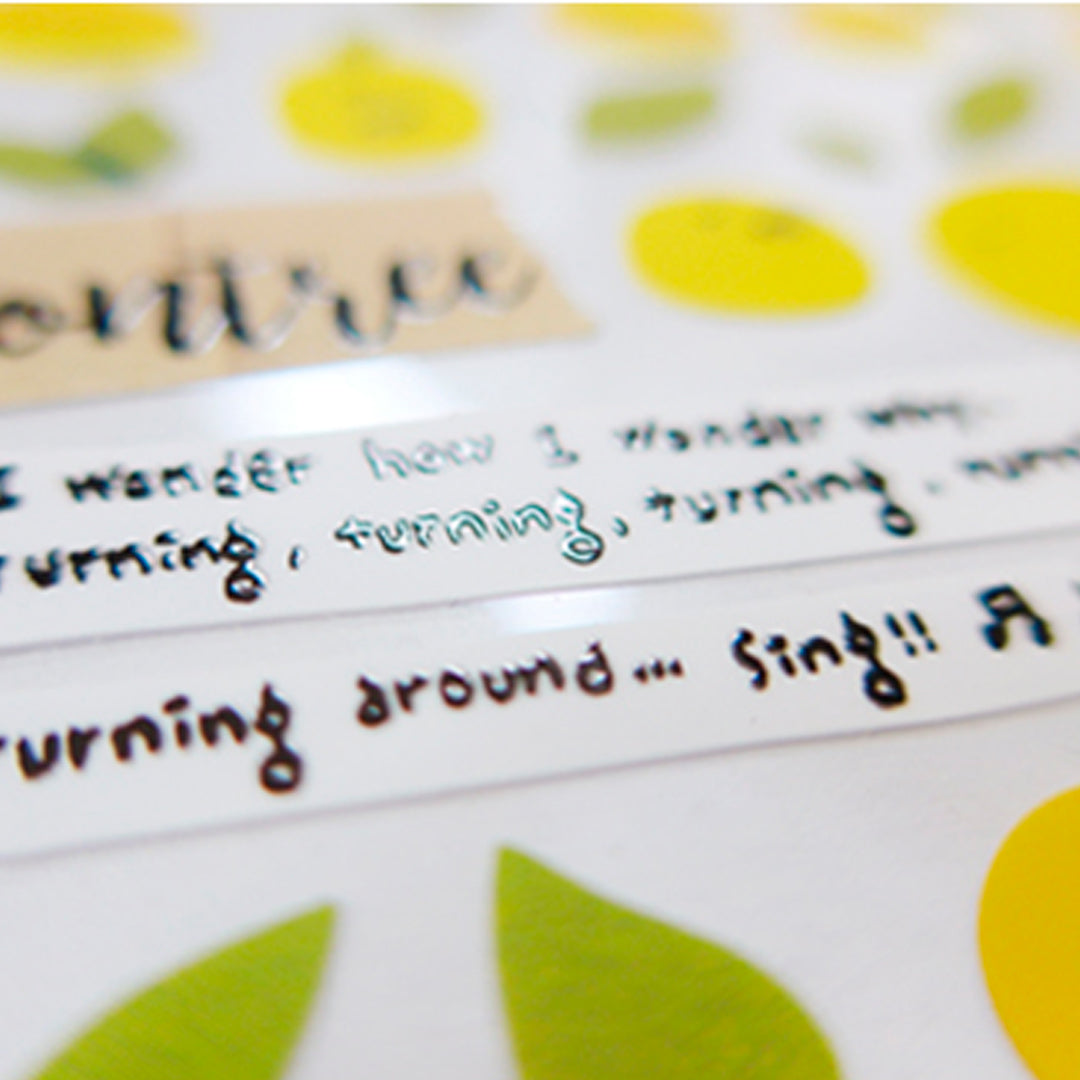 ontree
I wonder how I wonder why
turning, turning, turning, turni
turning around... Sing!! ♫